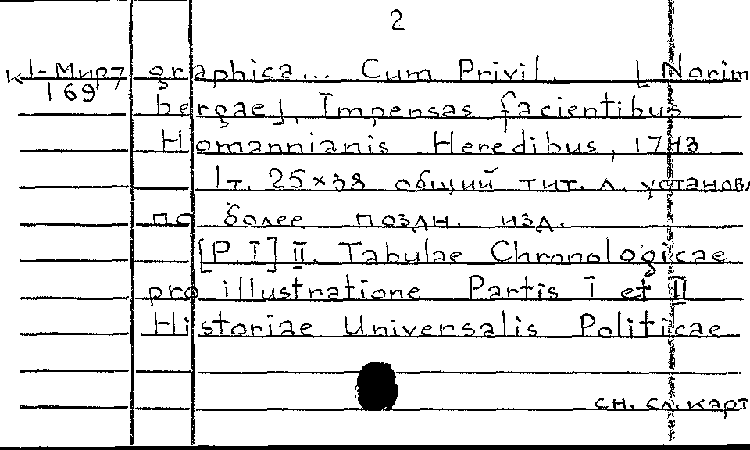 2
К 1-Мир7 graphica... Cum Privil. [Norim
169
bergae], Impensas facientibus
Homannianis Heredibus, 1743
1т. 25×38 общий тит. л. установл
по более поздн. изд.
[P I] II. Tabulae Chronologicae
pro illustratione Partis I et II
Historiae Universalis Politicae
см. сл. карт